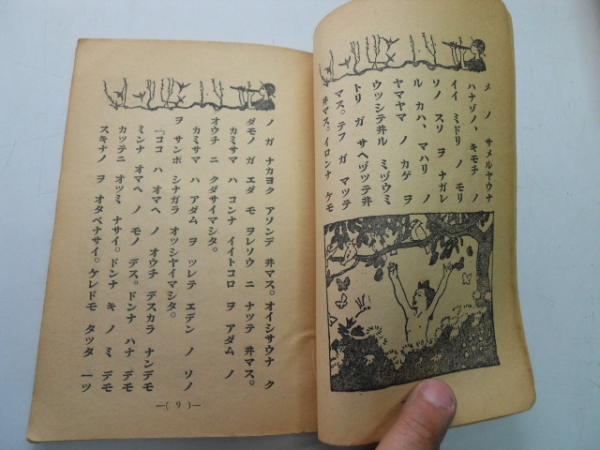 メノ サメルヤウナ
ハナゾノ、キモチ ノ
イイ ミドリ ノ モリ
ソノ スソ ヲ ナガレ
ル カハ、マハリ ノ
ヤマヤマ ノ カゲ ヲ
ウツシテヰル ミヅウミ
トリ ガ サヘヅツテヰ
マス。テフ ガ マツテ
ヰマス。イロンナ ケモ
ノ ガ ナカヨク アソンデ ヰマス。オイシサウナ ク
ダモノ ガ エダ モ ヲレソウ ニ ナツテ ヰマス。
カミサマ ハ コンナ イイトコロ ヲ アダム ノ
オウチ ニ クダサイマシタ。
カミサマ ハ アダム ヲ ツレテ エデン ノ ソノ
ヲ サンポ シナガラ オツシヤイマシタ。
「ココ ハ オマヘ ノ オウチ デスカラ ナンデモ
ミンナ オマヘ ノ モノ デス。ドンナ ハナ デモ
カツテニ オツミ ナサイ。ドンナ キ ノ ミ デモ
スキナノ ヲ オタベナサイ。ケレドモ タツタ 一ツ
—( 9 )—